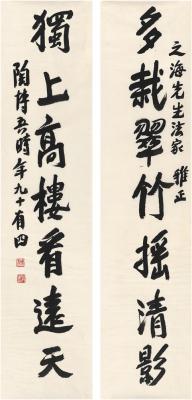 之海先生法家 雅正
多栽翠竹搖清影
獨上高樓看遠天
陶博吾時年九十有四